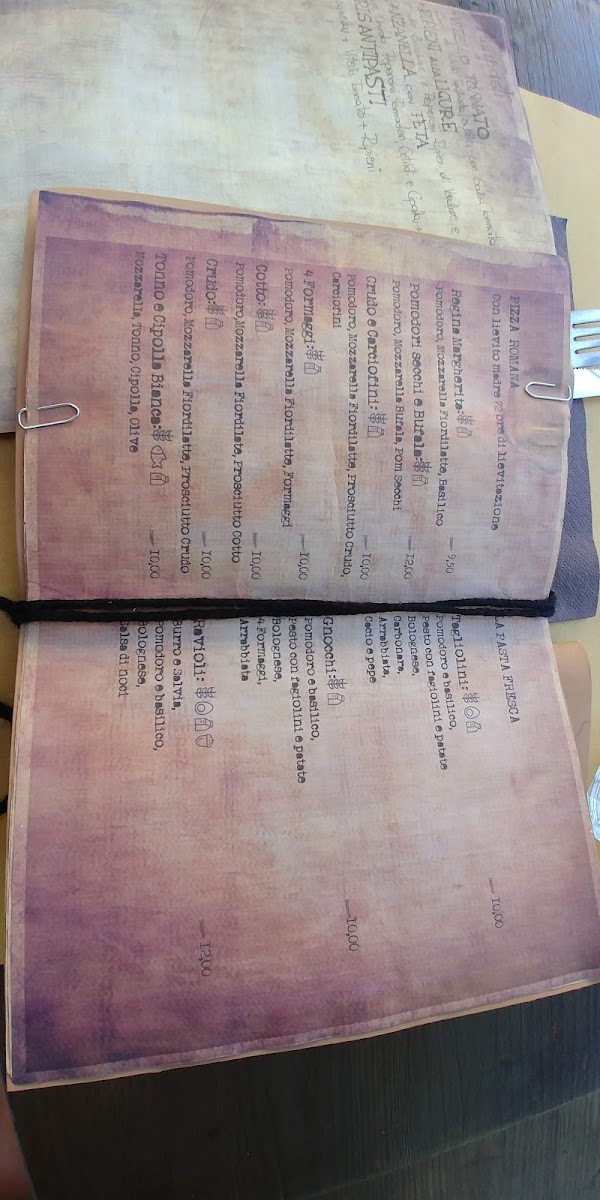 TONNATO
RIPIENI alla LIGURE
PANZANELLA con FETA
TRIS ANTIPASTI
Vitello tonnato + Ripieni
PIZZA ROMANA
Con lievito madre 72 ore di lievitazione
Regina Margherita:
Pomodoro, Mozzarella Fiordilatte, Basilico — 9,50
Pomodori secchi e Bufala:
Pomodoro, Mozzarella Bufala, Pom Secchi — 12,00
Crudo e Carciofini:
Pomodoro, Mozzarella Fiordilatte, Prosciutto Crudo, — 10,00
Carciofini
4 Formaggi:
Pomodoro, Mozzarella Fiordilatte, Formaggi — 10,00
Cotto:
Pomodoro, Mozzarella Fiordilatte, Prosciutto Cotto — 10,00
Crudo:
Pomodoro, Mozzarella Fiordilatte, Prosciutto Crudo — 10,00
Tonno e Cipolla Bianca:
Mozzarella, Tonno, Cipolla, Olive — 10,00
LA PASTA FRESCA
Tagliolini: — 10,00
Pomodoro e basilico,
Pesto con fagiolini e patate
Bolognese,
Carbonara,
Arrabbiata,
Cacio e pepe
Gnocchi: — 10,00
Pomodoro e basilico,
Pesto con fagiolini e patate
Bolognese,
4 Formaggi,
Arrabbiata
Ravioli: — 12,00
Burro e Salvia,
Pomodoro e basilico,
Bolognese,
Salsa di noci